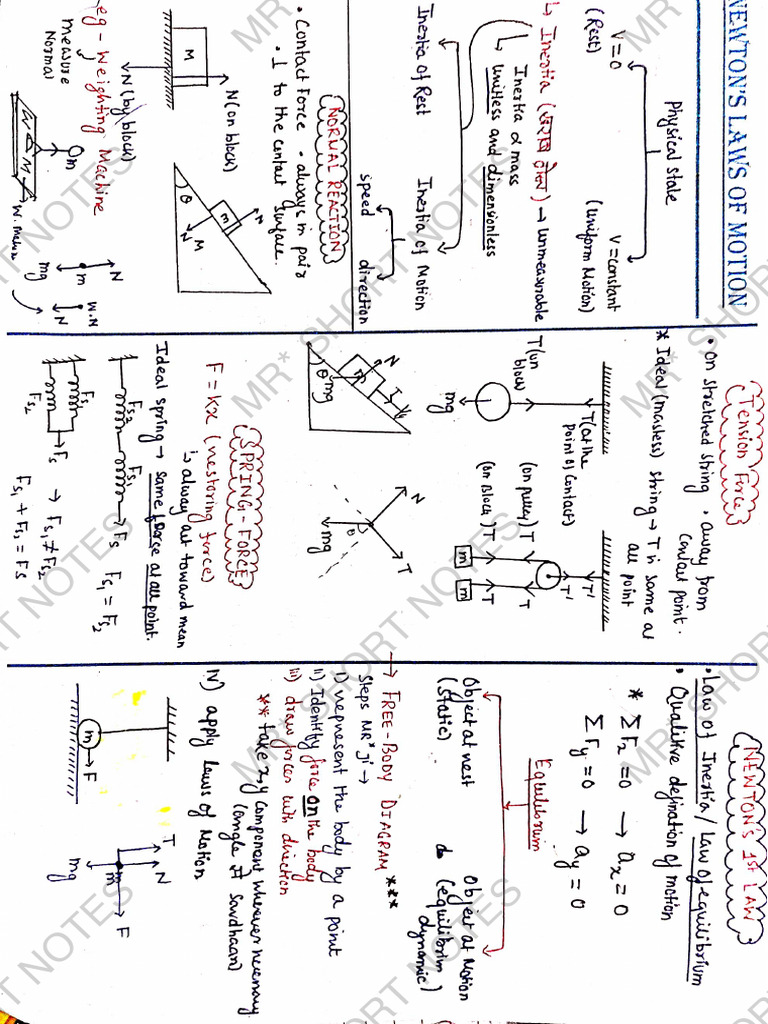 NEWTON'S LAWS OF MOTION
Physical state
V=0
(Rest)
V=constant
(Uniform Motion)
↳ Inertia () → unmeasurable
Inertia α mass
↳ unitless and dimensionless
Inertia of Rest
Inertia of Motion
speed
direction
NORMAL REACTION
• Contact Force • always in pair
• ⊥ to the contact surface.
N(on block)
M
N(by block)
N
m
N
M
θ
eg - Weighting Machine
measure
Normal
m
W.M
N
m
mg
W.M
N
Tension Force
• on stretched string • away from
contact point.
* Ideal (massless) string → T is same at
all point
T(at the
point of contact)
T(on
block)
mg
T'
T'
(on pulley) T
T
(on Block) T
T
m
m
N
T
m
mg
θ
N
T
θ
mg
SPRING-FORCE
F = Kx (restoring force)
↳ always act toward mean
Ideal spring → same force at all point.
Fs2
Fs1
Fs
Fs1 = Fs2
Fs1
Fs2
Fs
→ Fs1 ≠ Fs2
Fs1 + Fs2 = Fs
NEWTON'S 1ST LAW
• Law of Inertia / Law of equilibrium
• Qualitive defination of motion
* ΣFx = 0 → ax = 0
ΣFy = 0 → ay = 0
Equilibrium
Object at rest
(static)
Object at Motion
(equilibrium
dynamic)
→ FREE-BODY DIAGRAM ***
Steps MR* ji →
i) represent the body by a point
ii) Identify force on the body
iii) draw forces with direction
** take x,y component wherever necessary
(angle Savdhaan)
iv) apply laws of Motion
m
F
T
N
m
F
mg
MR* SHORT NOTES